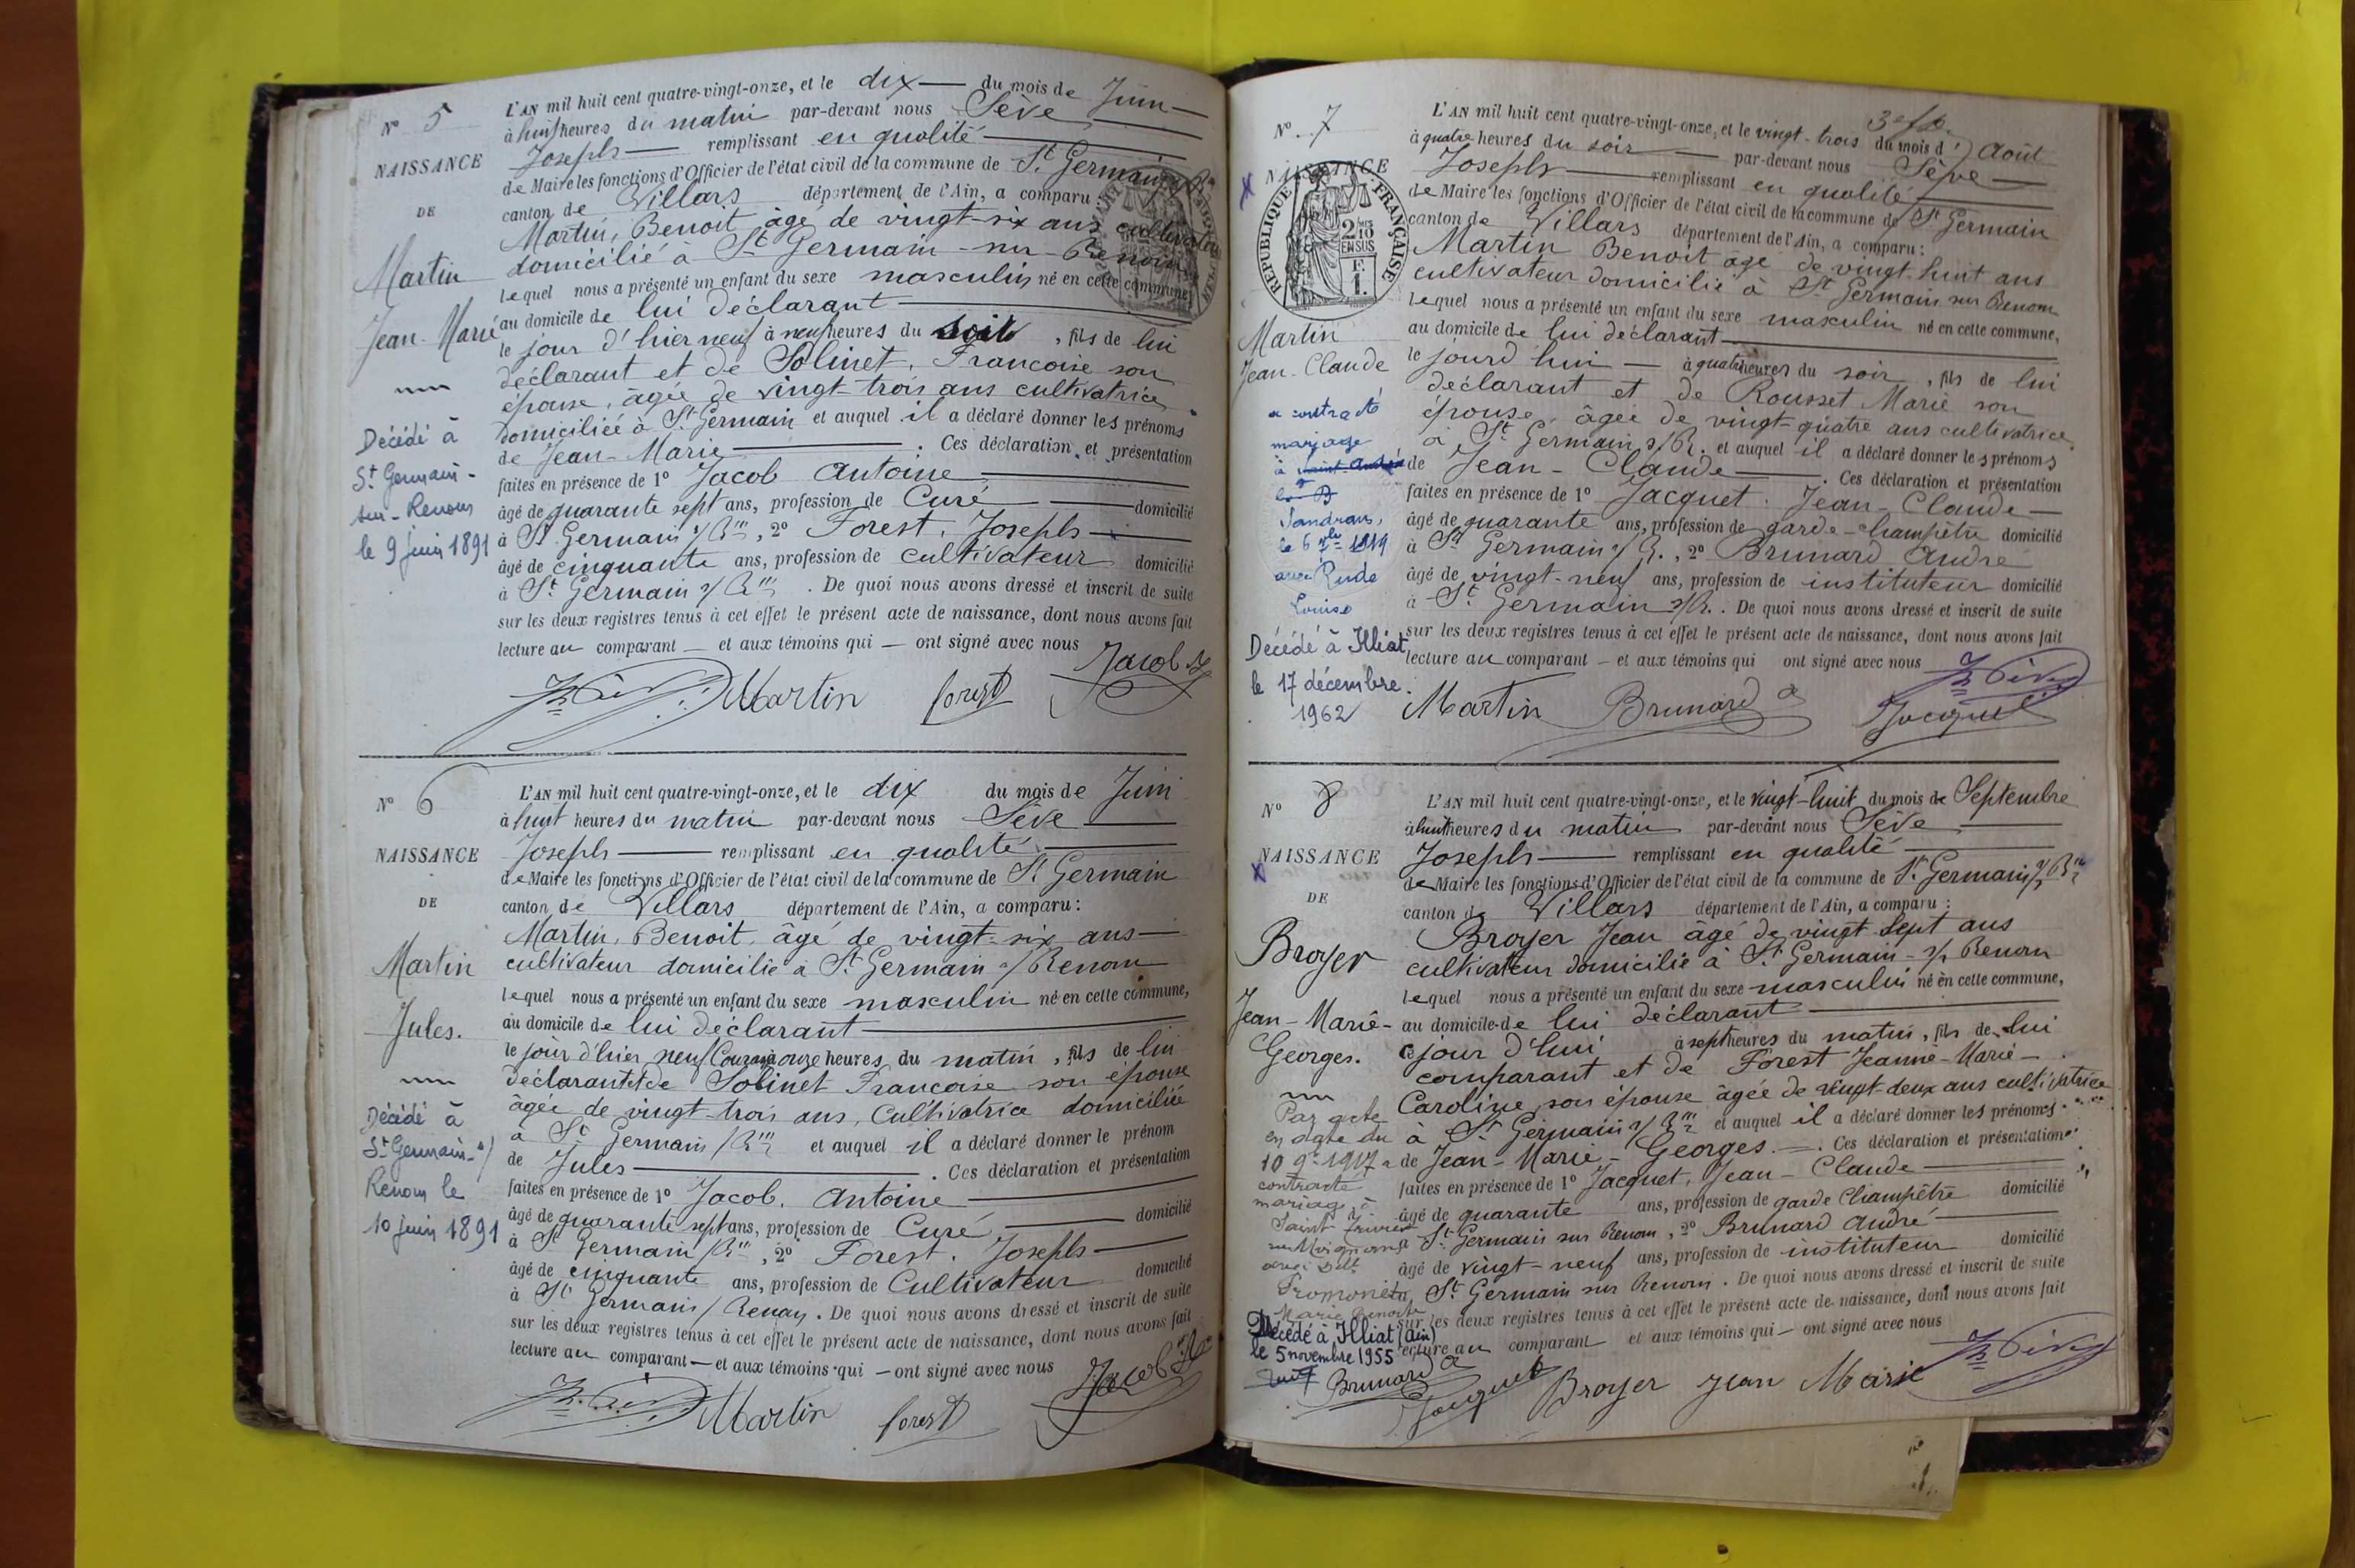 N° 5
NAISSANCE
DE
Martin
Jean-Marie
Décédé à
St Germain-
sur-Renom
le 9 juin 1891
L'AN mil huit cent quatre-vingt-onze, et le dix du mois de Juin
à huit heures du matin par-devant nous Sève
Joseph remplissant en qualité
de Maire les fonctions d'Officier de l'état civil de la commune de St Germain
canton de Villars département de l'Ain, a comparu :
Martin, Benoit âgé de vingt-six ans cultivateur
domicilié à St Germain-sur-Renom
lequel nous a présenté un enfant du sexe masculin né en cette commune,
au domicile de lui déclarant
le jour d'hier neuf à neuf heures du soir, fils de lui
déclarant et de Solinet, Francoise son
épouse, âgée de vingt-trois ans cultivatrice
domiciliée à St Germain et auquel il a déclaré donner les prénoms
de Jean-Marie. Ces déclaration et présentation
faites en présence de 1° Jacob Antoine
âgé de quarante sept ans, profession de Curé domicilié
à St Germain s/Rm, 2° Forest, Joseph
âgé de cinquante ans, profession de cultivateur domicilié
à St Germain s/Rm. De quoi nous avons dressé et inscrit de suite
sur les deux registres tenus à cet effet le présent acte de naissance, dont nous avons fait
lecture au comparant et aux témoins qui ont signé avec nous
Martin forest Jacob
N° 6
NAISSANCE
DE
Martin
Jules.
Décédé à
St Germain-s/
Renom le
10 juin 1891
L'AN mil huit cent quatre-vingt-onze, et le dix du mois de Juin
à huit heures du matin par-devant nous Sève
Joseph remplissant en qualité
de Maire les fonctions d'Officier de l'état civil de la commune de St Germain
canton de Villars département de l'Ain, a comparu :
Martin, Benoit, âgé de vingt-six ans
cultivateur domicilié à St Germain s/Renom
lequel nous a présenté un enfant du sexe masculin né en cette commune,
au domicile de lui déclarant
le jour d'hier neuf Courant à onze heures du matin, fils de lui
déclarant et de Solinet Francoise son épouse
âgée de vingt-trois ans, Cultivatrice domiciliée
à St Germain s/Rm et auquel il a déclaré donner le prénom
de Jules. Ces déclaration et présentation
faites en présence de 1° Jacob, Antoine
âgé de quarante sept ans, profession de Curé domicilié
à St Germain s/Rm, 2° Forest, Joseph
âgé de cinquante ans, profession de Cultivateur domicilié
à St Germain s/Renom. De quoi nous avons dressé et inscrit de suite
sur les deux registres tenus à cet effet le présent acte de naissance, dont nous avons fait
lecture au comparant et aux témoins qui ont signé avec nous
Martin forest Jacob
N° 7
NAISSANCE
RÉPUBLIQUE FRANÇAISE
2/10
EN SUS
F.
1.
Martin
Jean-Claude
a contracté
mariage
à
Sandrans,
le 6 1919
avec Rude
Louise
Décédé à Illiat
le 17 décembre
1962
L'AN mil huit cent quatre-vingt-onze, et le vingt-trois du mois d'Août
à quatre heures du soir par-devant nous Sève
Joseph remplissant en qualité
de Maire les fonctions d'Officier de l'état civil de la commune de St Germain
canton de Villars département de l'Ain, a comparu :
Martin Benoit âgé de vingt-huit ans
cultivateur domicilié à St Germain sur Renom
lequel nous a présenté un enfant du sexe masculin né en cette commune,
au domicile de lui déclarant
le jourd'hui à quatre heures du soir, fils de lui
déclarant et de Rousset Marie son
épouse, âgée de vingt-quatre ans cultivatrice
à St Germain s/R. et auquel il a déclaré donner les prénoms
de Jean-Claude. Ces déclaration et présentation
faites en présence de 1° Jacquet, Jean-Claude
âgé de quarante ans, profession de garde-champêtre domicilié
à St Germain s/R., 2° Brunard André
âgé de vingt-neuf ans, profession de instituteur domicilié
à St Germain s/R. De quoi nous avons dressé et inscrit de suite
sur les deux registres tenus à cet effet le présent acte de naissance, dont nous avons fait
lecture au comparant et aux témoins qui ont signé avec nous
Martin Brunard Jacquet
N° 8
NAISSANCE
DE
Broyer
Jean-Marie-
Georges.
Par acte
en date du
10 9bre 1917 a
contracté
mariage à
Saint Trivier
sur Moignans
avec Delle
Marie Benoite
Décédé à Illiat (Ain)
le 5 novembre 1955
L'AN mil huit cent quatre-vingt-onze, et le vingt-huit du mois de Septembre
à huit heures du matin par-devant nous Sève
Joseph remplissant en qualité
de Maire les fonctions d'Officier de l'état civil de la commune de St Germain s/Rm
canton de Villars département de l'Ain, a comparu :
Broyer Jean âgé de vingt sept ans
cultivateur domicilié à St Germain-s/Renom
lequel nous a présenté un enfant du sexe masculin né en cette commune,
au domicile de lui déclarant
ce jour d'hui à sept heures du matin, fils de lui
comparant et de Forest Jeanne-Marie-
Caroline son épouse âgée de vingt-deux ans cultivatrice
à St Germain s/Rm et auquel il a déclaré donner les prénoms
de Jean-Marie-Georges. Ces déclaration et présentation
faites en présence de 1° Jacquet, Jean-Claude
âgé de quarante ans, profession de garde Champêtre domicilié
St Germain sur Renom, 2° Brunard André
âgé de vingt-neuf ans, profession de instituteur domicilié
St Germain sur Renom. De quoi nous avons dressé et inscrit de suite
sur les deux registres tenus à cet effet le présent acte de naissance, dont nous avons fait
lecture au comparant et aux témoins qui ont signé avec nous
Brunard Jacquet Broyer Jean Marie